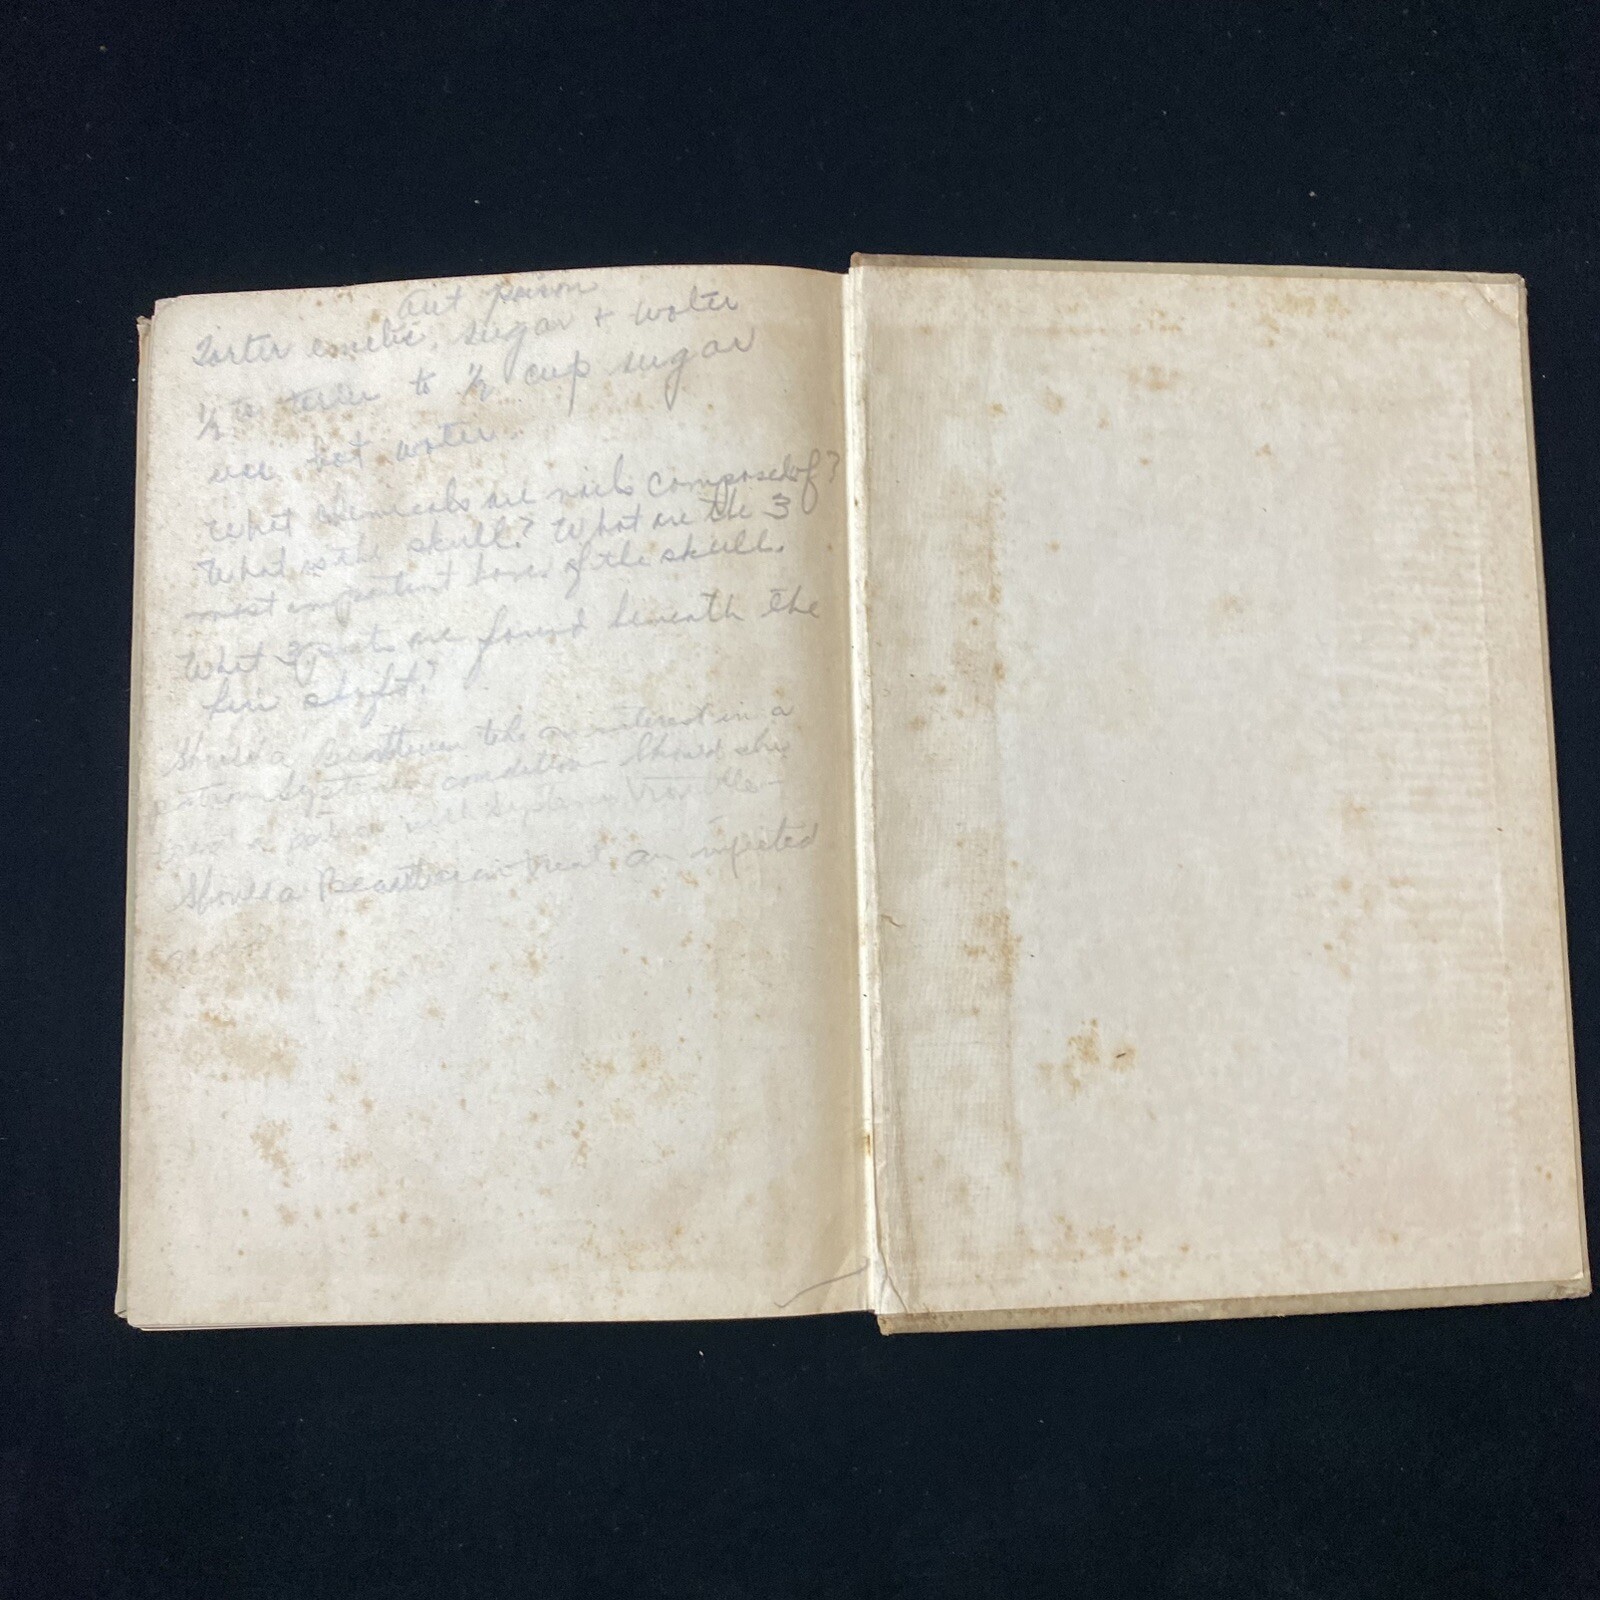 Ant poison
Tarter emetic, sugar + water
1/2 to tarter to 1/2 cup sugar
use hot water.
What chemicals are nails composed of?
What is the skull? What are the 3
most important bones of the skull.
What 3 parts are found beneath the
hair shaft?
Should a Beautician take an interest in a
patrons systemic condition Should she
treat a patron with systemic trouble
Should a Beautician treat an infected